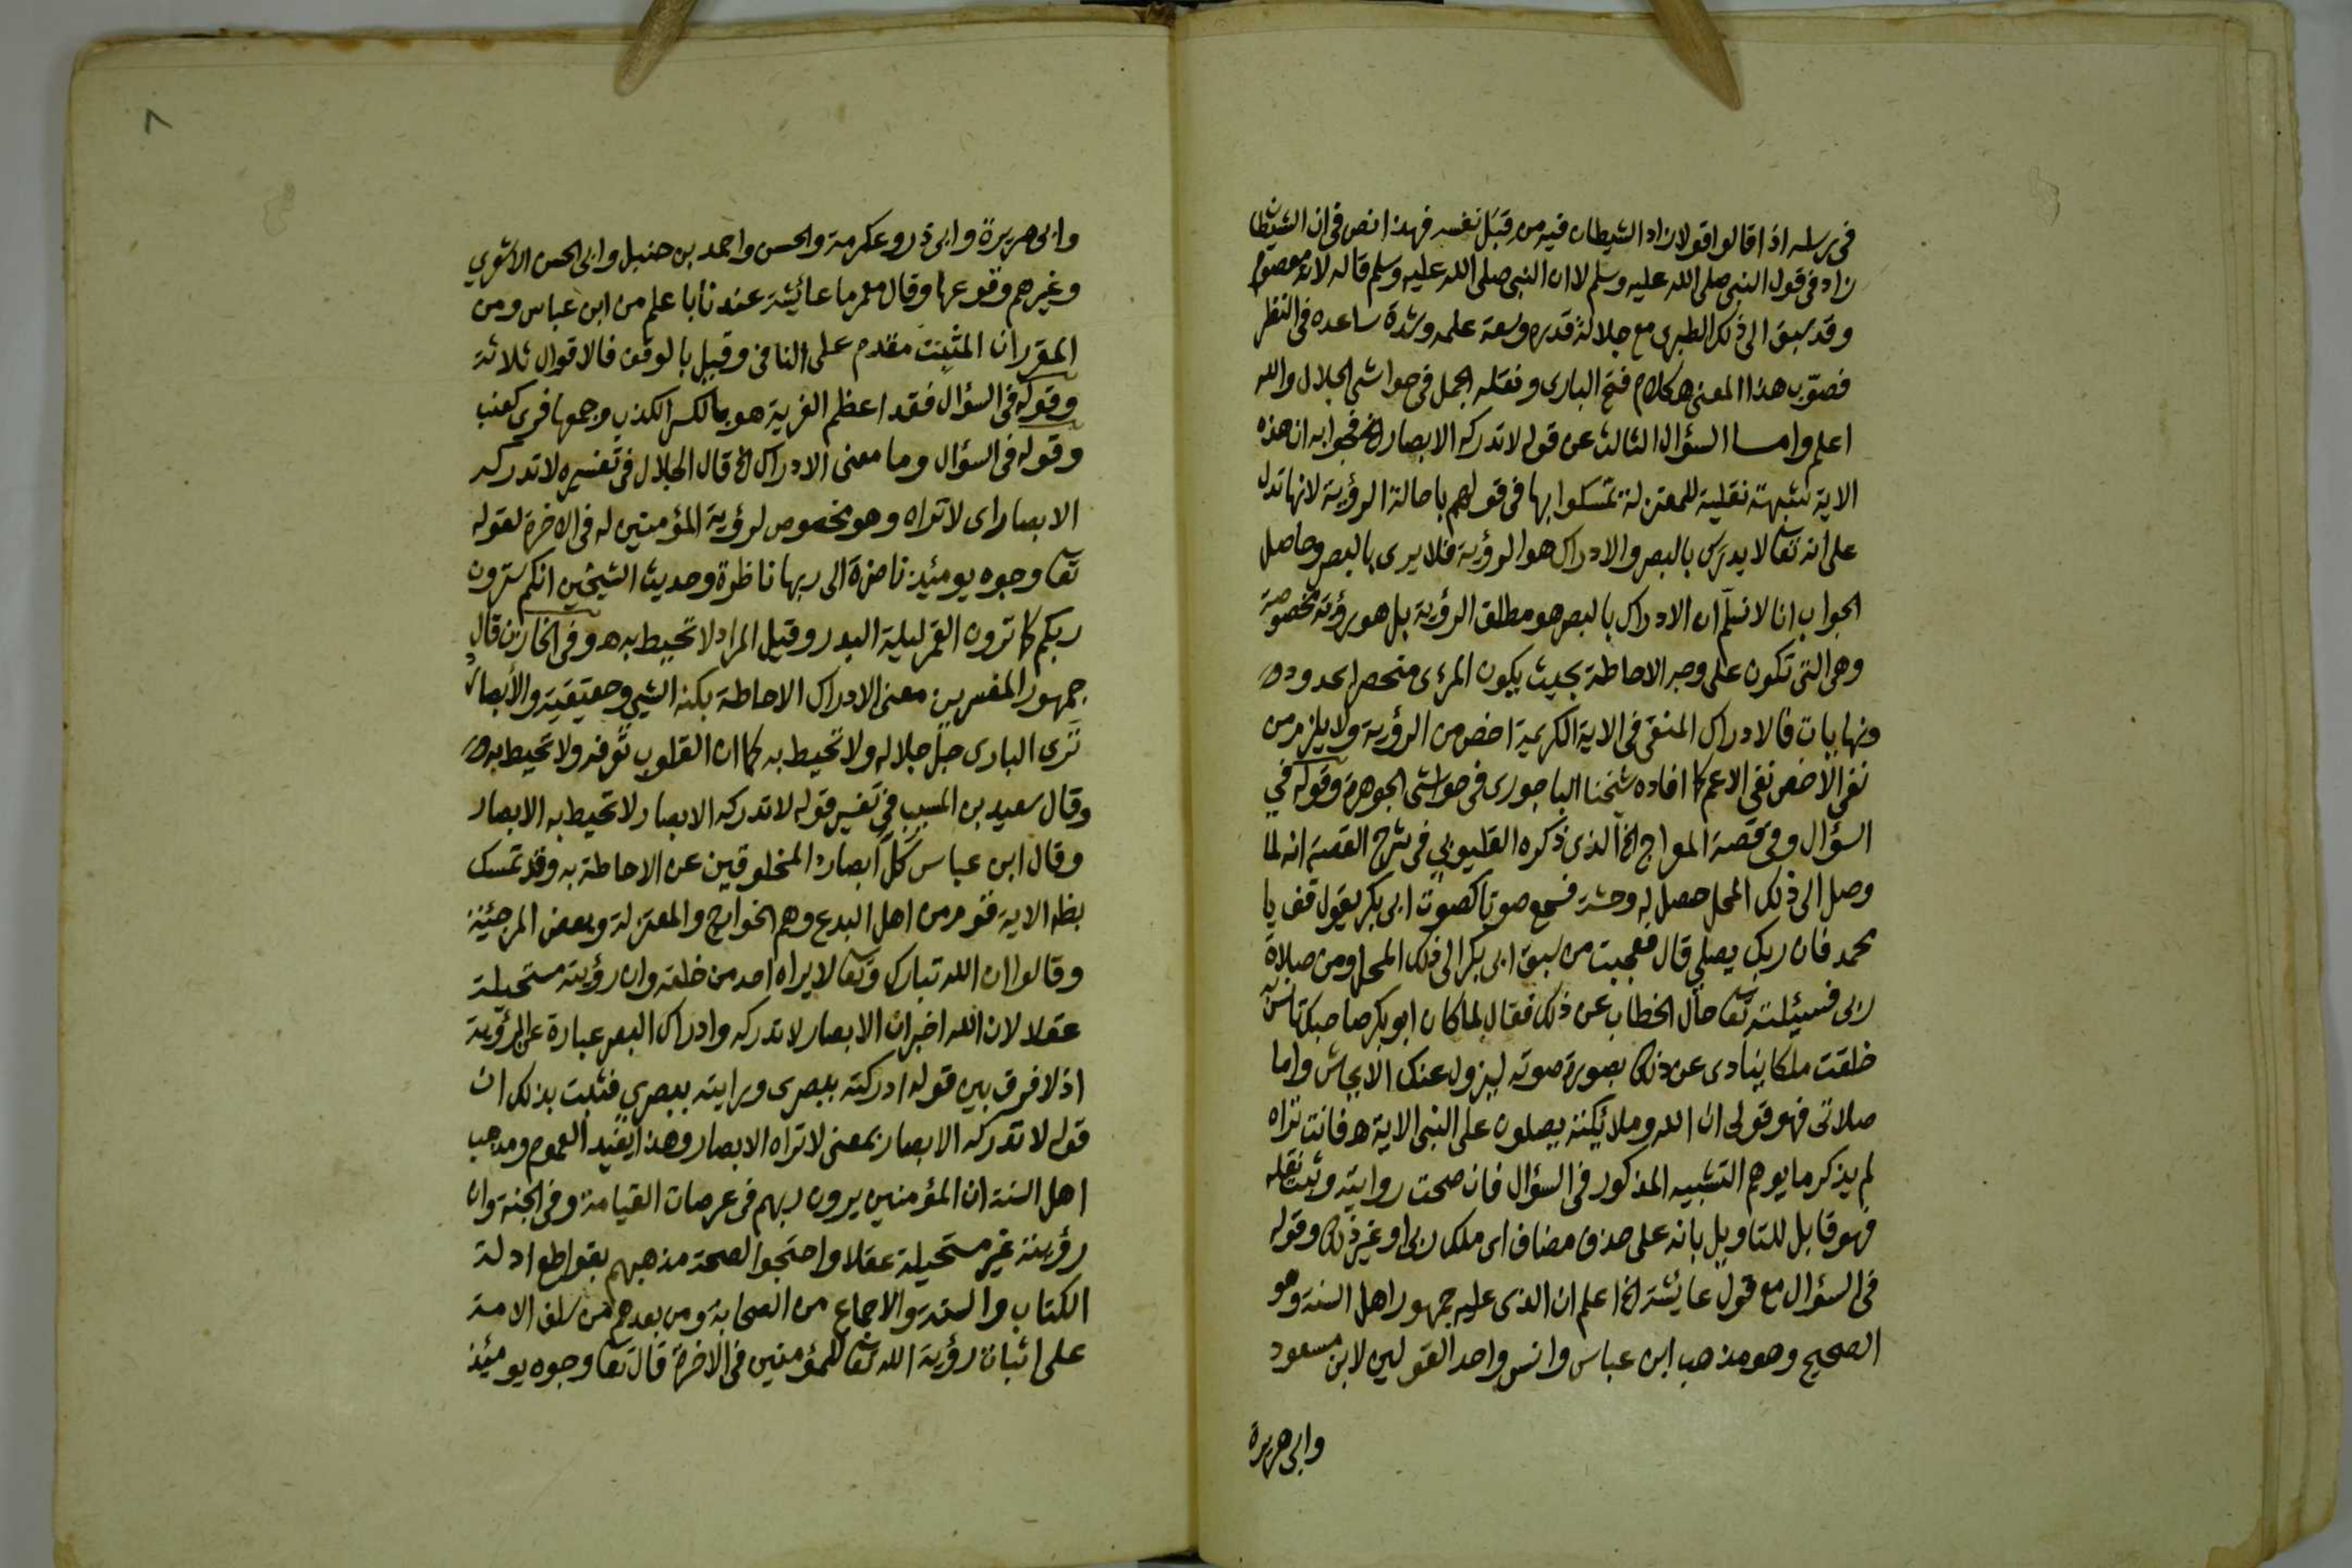 في رسله اذا قالوا قولا زاد الشيطان فيه من قبل نفسه فهذا نص في ان الشيطان
زاد في قول النبي صلى الله عليه وسلم لا ان النبي صلى الله عليه وسلم قاله لانه معصوم
وقد سبق الى ذلك الطبري مع جلالة قدره وسعة علمه وشدة ساعده في النظر
فصوّب هذا المعنى اهـ كلام فتح الباري ونقله الجمل في حواشي الجلال والله
اعلم واما السؤال الثالث عن قوله لا تدركه الابصار الخ فجوابه ان هذه
الاية شبهة نقلية للمعتزلة تمسكوا بها في قولهم باحالة الرؤية لانها تدل
على انه تعا لا يدرك بالبصر والادراك هو الرؤية فلا يرى بالبصر وحاصل
الجواب انا لا نسلّم ان الادراك بالبصر هو مطلق الرؤية بل هو رؤية مخصوصة
وهي التي تكون على وجه الاحاطة بحيث يكون المرئ منحصرا بحدود
ونهايات فالادراك المنفي في الاية الكريمة اخص من الرؤية ولا يلزم من
نفي الأخص نفي الاعم كما افاده شيخنا الباجوري في حواشي الجوهرة وقوله في
السؤال وفي قصة المعراج الخ الذي ذكره القليوبي في شرح القصة انه لما
وصل الى ذلك المحل حصل له وحشة فسمع صوتا كصوت ابي بكر يقول قف يا
محمد فان ربك يصلي قال فعجبت من سبق ابي بكر الى ذلك المحل ومن صلاة
ربي فسيئلته تعا حال الخطاب عن ذلك فقال لما كان ابو بكر صاحبك تأنس به
خلقت ملكا ينادى عن ذلك بصورة صوته ليزول عنك الايحاش واما
صلاتي فهو قولي ان الله وملائيكته يصلون على النبي الاية اهـ فانت تراه
لم يذكر ما يوهم التشبيه المذكور في السؤال فان صحت روايته وثبت نقله
فهو قابل للتاويل بانه على حذف مضاف اى ملك ربي او غير ذلك وقوله
في السؤال مع قول عايشة الخ اعلم ان الذي عليه جمهور اهل السنة وهو
الصحيح وهو مذهب ابن عباس وانس واحد القولين لابن مسعود
وابي هريرة
٨
وابي هريرة وابي ذر وعكرمة والحسن واحمد بن حنبل وابي الحسن الاشعري
وغيرهم وقوعها وقال معمر ما عائيشة عندنا باعلم من ابن عباس ومن
المقرر ان المثبت مقدم على النافي وقيل بالوقف فالاقوال ثلاثة
وقوله في السؤال فقد اعظم الفرية هو بالكسر الكذب وجمعها فرى كعنب
وقوله في السؤال وما معنى الادراك الخ قال الجلال في تفسيره لا تدركه
الابصار اى لا تراه وهو مخصوص لرؤية المؤمنين له في الاخرة لقوله
تعا وجوه يومئيذ ناضرة الى ربها ناظرة وحديث الشيخين انكم سترون
ربكم كما ترون القمر ليلة البدر وقيل المراد لا تحيط به اهـ وفي الخازن قال
جمهور المفسرين معنى الادراك الاحاطة بكنه الشي وحقيقته والأبصار
ترى البارى جل جلاله ولا تحيط به كما ان القلوب تعرفه ولا تحيط به
وقال سعيد بن المسيب في تفسير قوله لا تدركه الابصار لا تحيط به الابصار
وقال ابن عباس كلّت ابصار المخلوقين عن الاحاطة به وقد تمسك
بظاهر الاية قوم من اهل البدع وهم الخوارج والمعتزلة وبعض المرجئة
وقالوا ان الله تبارك وتعا لا يراه احد من خلقه وان رؤيته مستحيلة
عقلا لان الله اخبر ان الابصار لا تدركه وادراك البصر عبارة عن الرؤية
اذ لا فرق بين قوله ادركته ببصرى ورايته ببصري فثبت بذلك ان
قوله لا تدركه الابصار بمعنى لا تراه الابصار وهذا يفيد العموم ومذهب
اهل السنة ان المؤمنين يرون ربهم في عرصات القيامة وفي الجنة وان
رؤيته غير مستحيلة عقلا واحتجوا لصحة مذهبهم بقواطع ادلة
الكتاب والسنة والاجماع من الصحابة ومن بعدهم من سلف الامة
على اثبات رؤية الله تعا للمؤمنين في الاخرة قال تعا وجوه يومئيذ